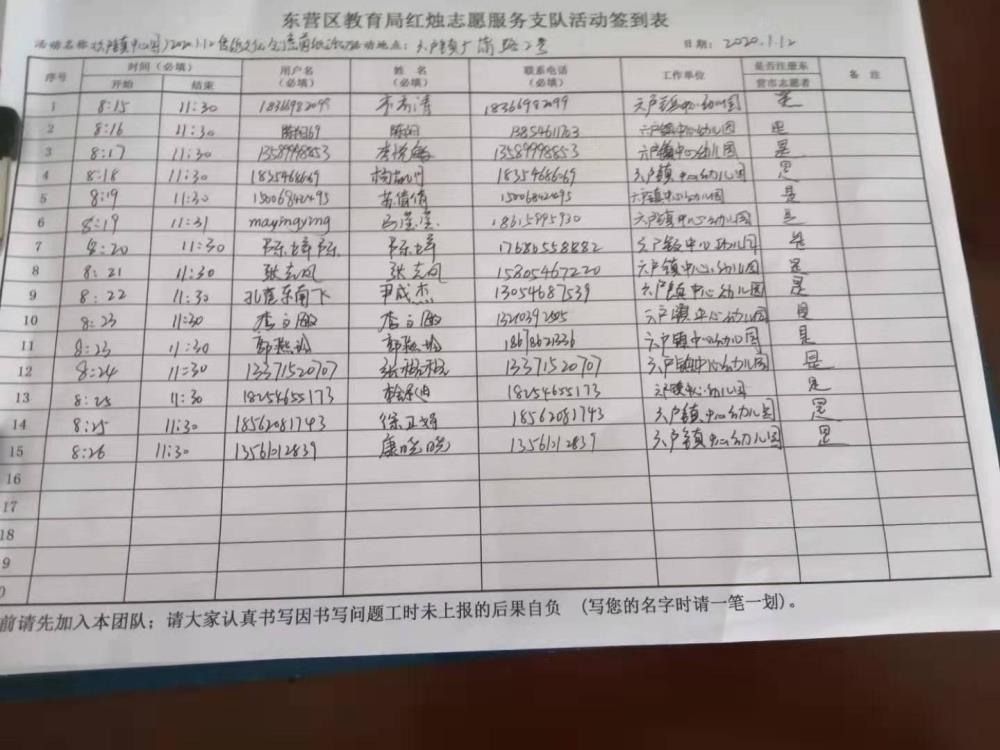 东营区教育局红烛志愿服务支队活动签到表
活动名称 2020.1.12 活动地点: 六户镇 路2号 日期: 2020.1.12
序号 时间(必填) 用户名(必填) 姓名(必填) 联系电话(必填) 工作单位 是否注册东营市志愿者 备注
开始 结束
1 8:15 11:30 18366982099 18366982099 六户镇中心幼儿园 是
2 8:16 11:30 陈闪69 陈闪 13854611763 六户镇中心幼儿园 是
3 8:17 11:30 13589998853 13589998853 六户镇中心幼儿园 是
4 8:18 11:30 18354686695 六户镇中心幼儿园 是
5 8:19 11:30 15006842495 苏倩倩 15006842495 六户镇中心幼儿园 是
6 8:19 11:31 mayingying 18615995930 六户镇中心幼儿园 是
7 8:20 11:30 17686558882 六户镇中心幼儿园 是
8 8:21 11:30 张志风 张志风 15805467220 六户镇中心幼儿园 是
9 8:22 11:30 孔雀东南飞 尹成杰 13054687539 六户镇中心幼儿园 是
10 8:23 11:30 李文 李文 六户镇中心幼儿园 是
11 8:23 11:30 18678621336 六户镇中心幼儿园 是
12 8:24 11:30 13371520707 张 13371520707 六户镇中心幼儿园 是
13 8:25 11:30 18254655173 18254655173 六户镇中心幼儿园 是
14 8:25 11:30 18562081743 徐正 18562081743 六户镇中心幼儿园 是
15 8:26 11:30 13561012839 康晓晓 13561012839 六户镇中心幼儿园 是
16
17
18
9
0
前请先加入本团队;请大家认真书写因书写问题工时未上报的后果自负 (写您的名字时请一笔一划)。